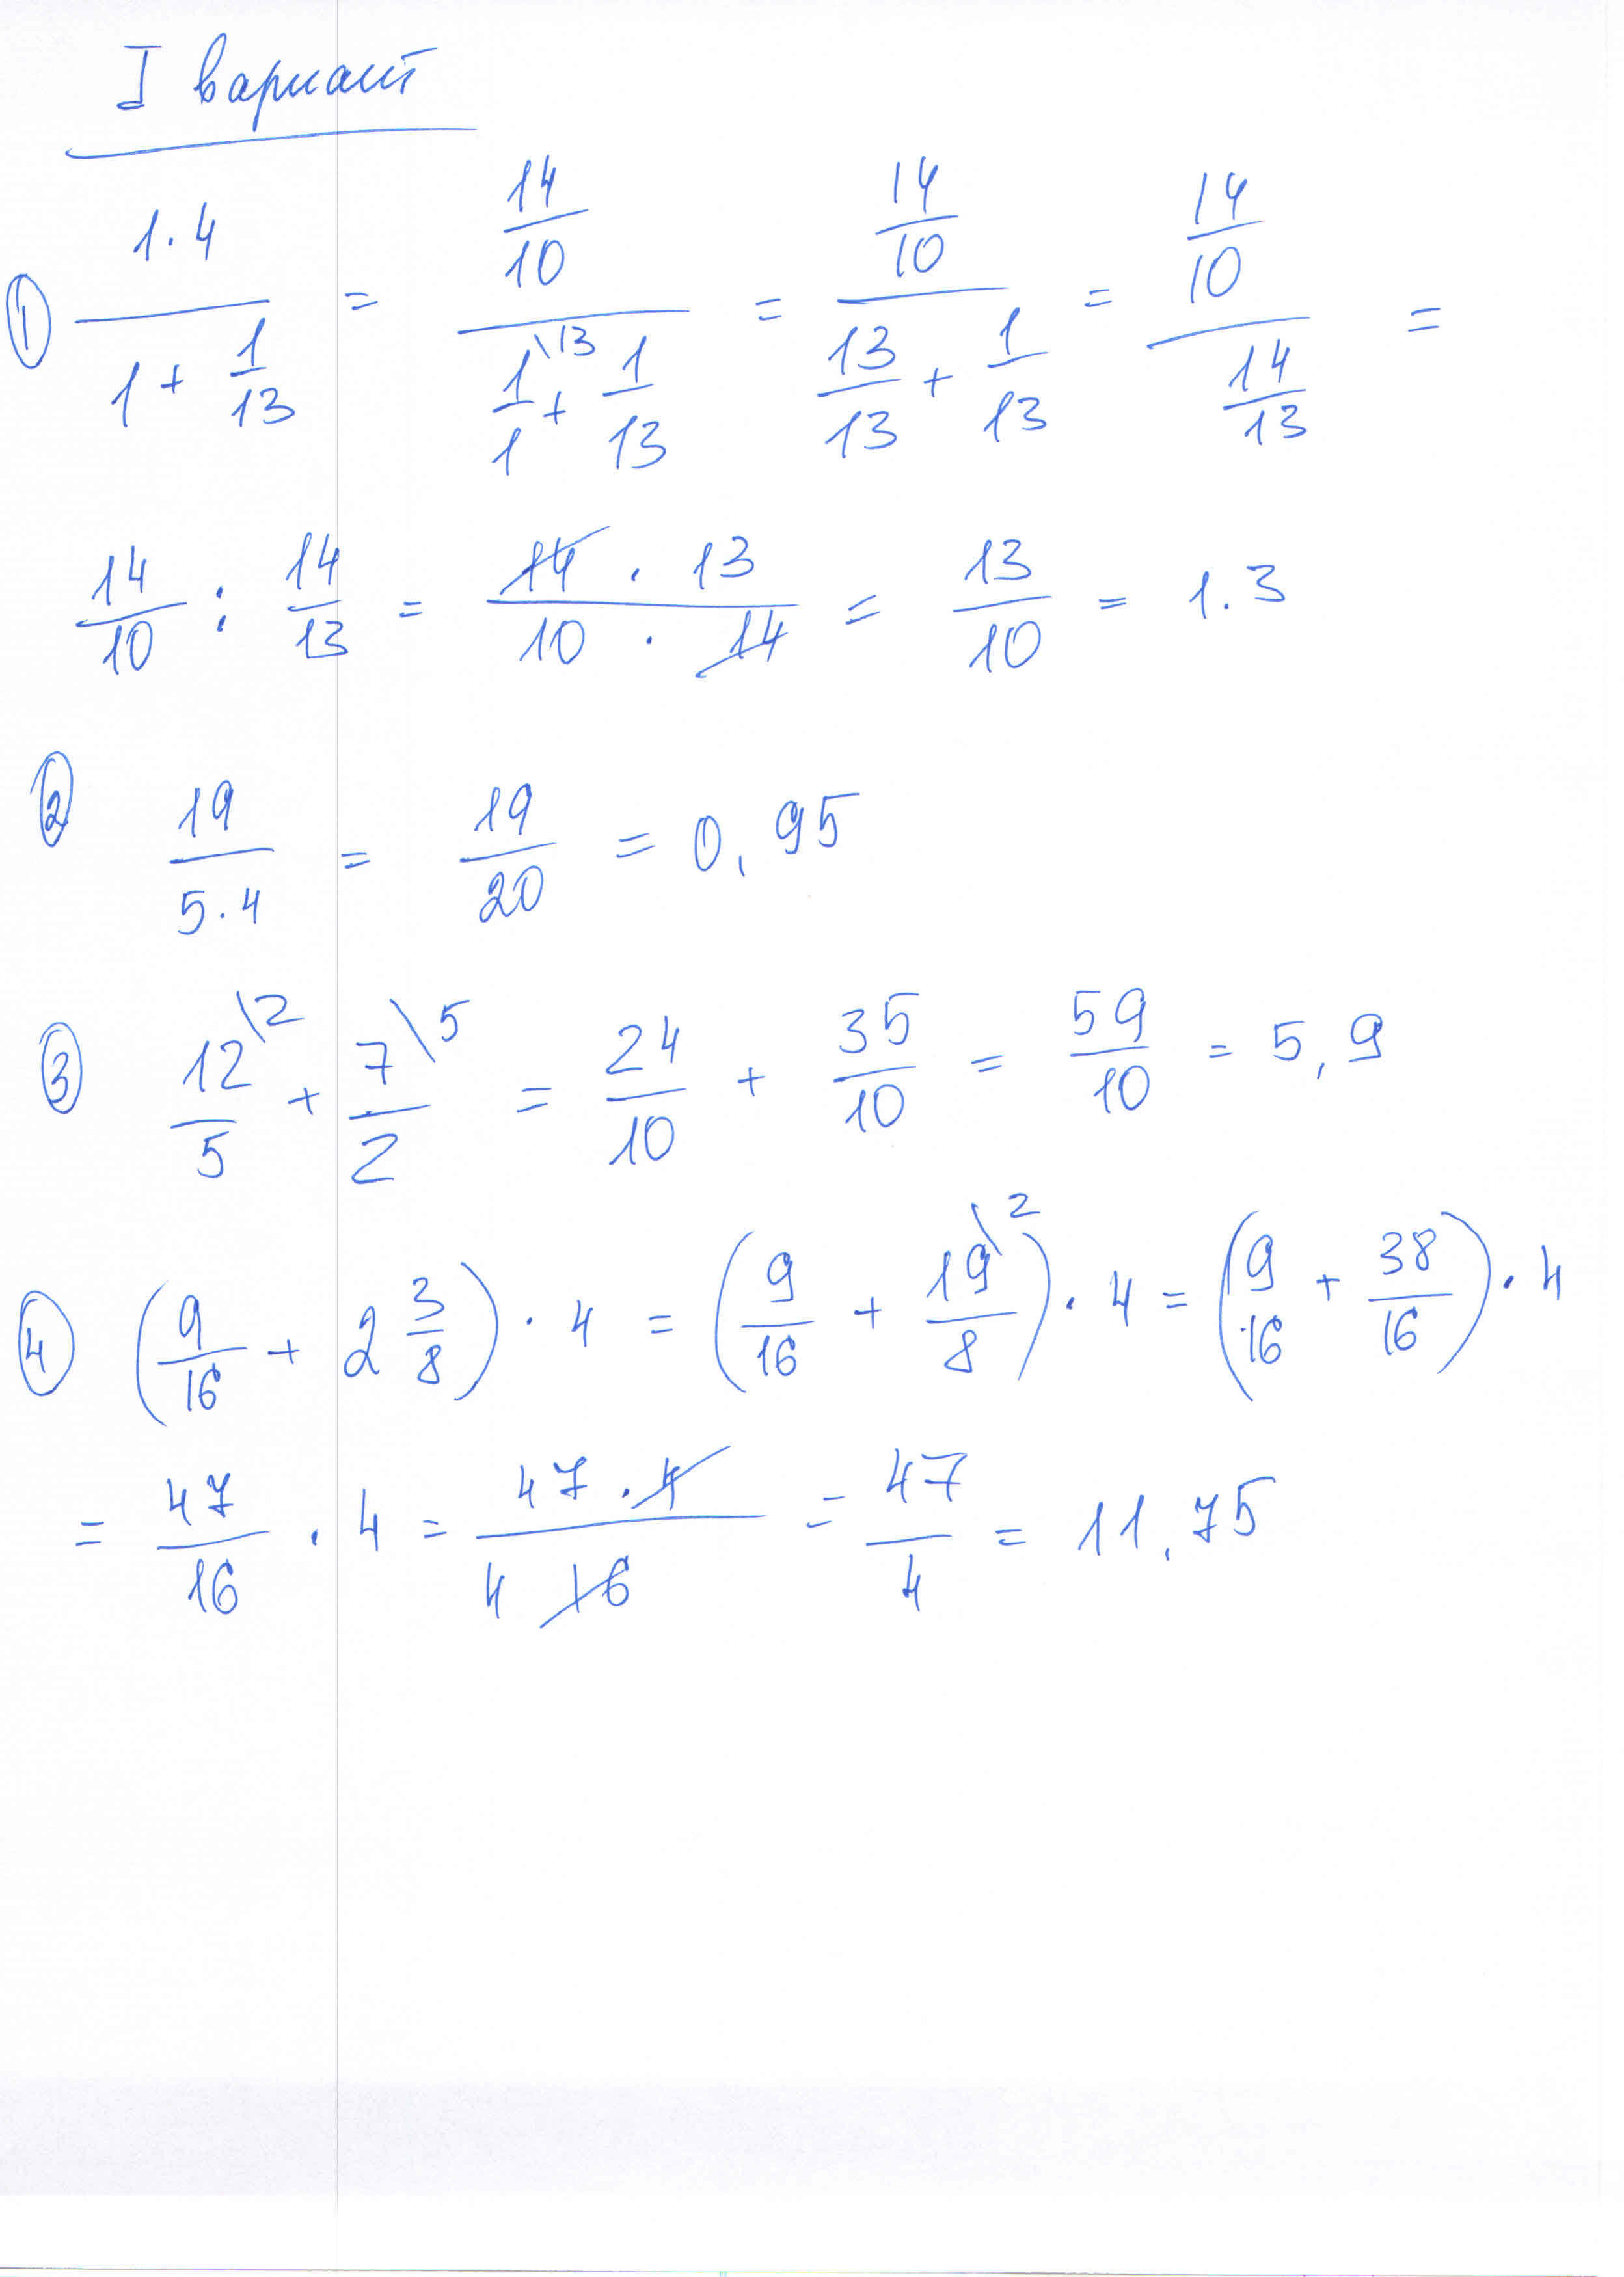 I вариант
① 1.4 / (1 + 1/13) = (14/10) / (1/1\13 + 1/13) = (14/10) / (13/13 + 1/13) = (14/10) / (14/13) =
14/10 : 14/13 = (14 · 13) / (10 · 14) = 13/10 = 1.3
② 19 / (5.4) = 19/20 = 0,95
③ 12\2 / 5 + 7\5 / 2 = 24/10 + 35/10 = 59/10 = 5,9
④ (9/16 + 2 3/8) · 4 = (9/16 + 19\2 / 8) · 4 = (9/16 + 38/16) · 4
= 47/16 · 4 = (47 · 4) / (4 16) = 47/4 = 11,75